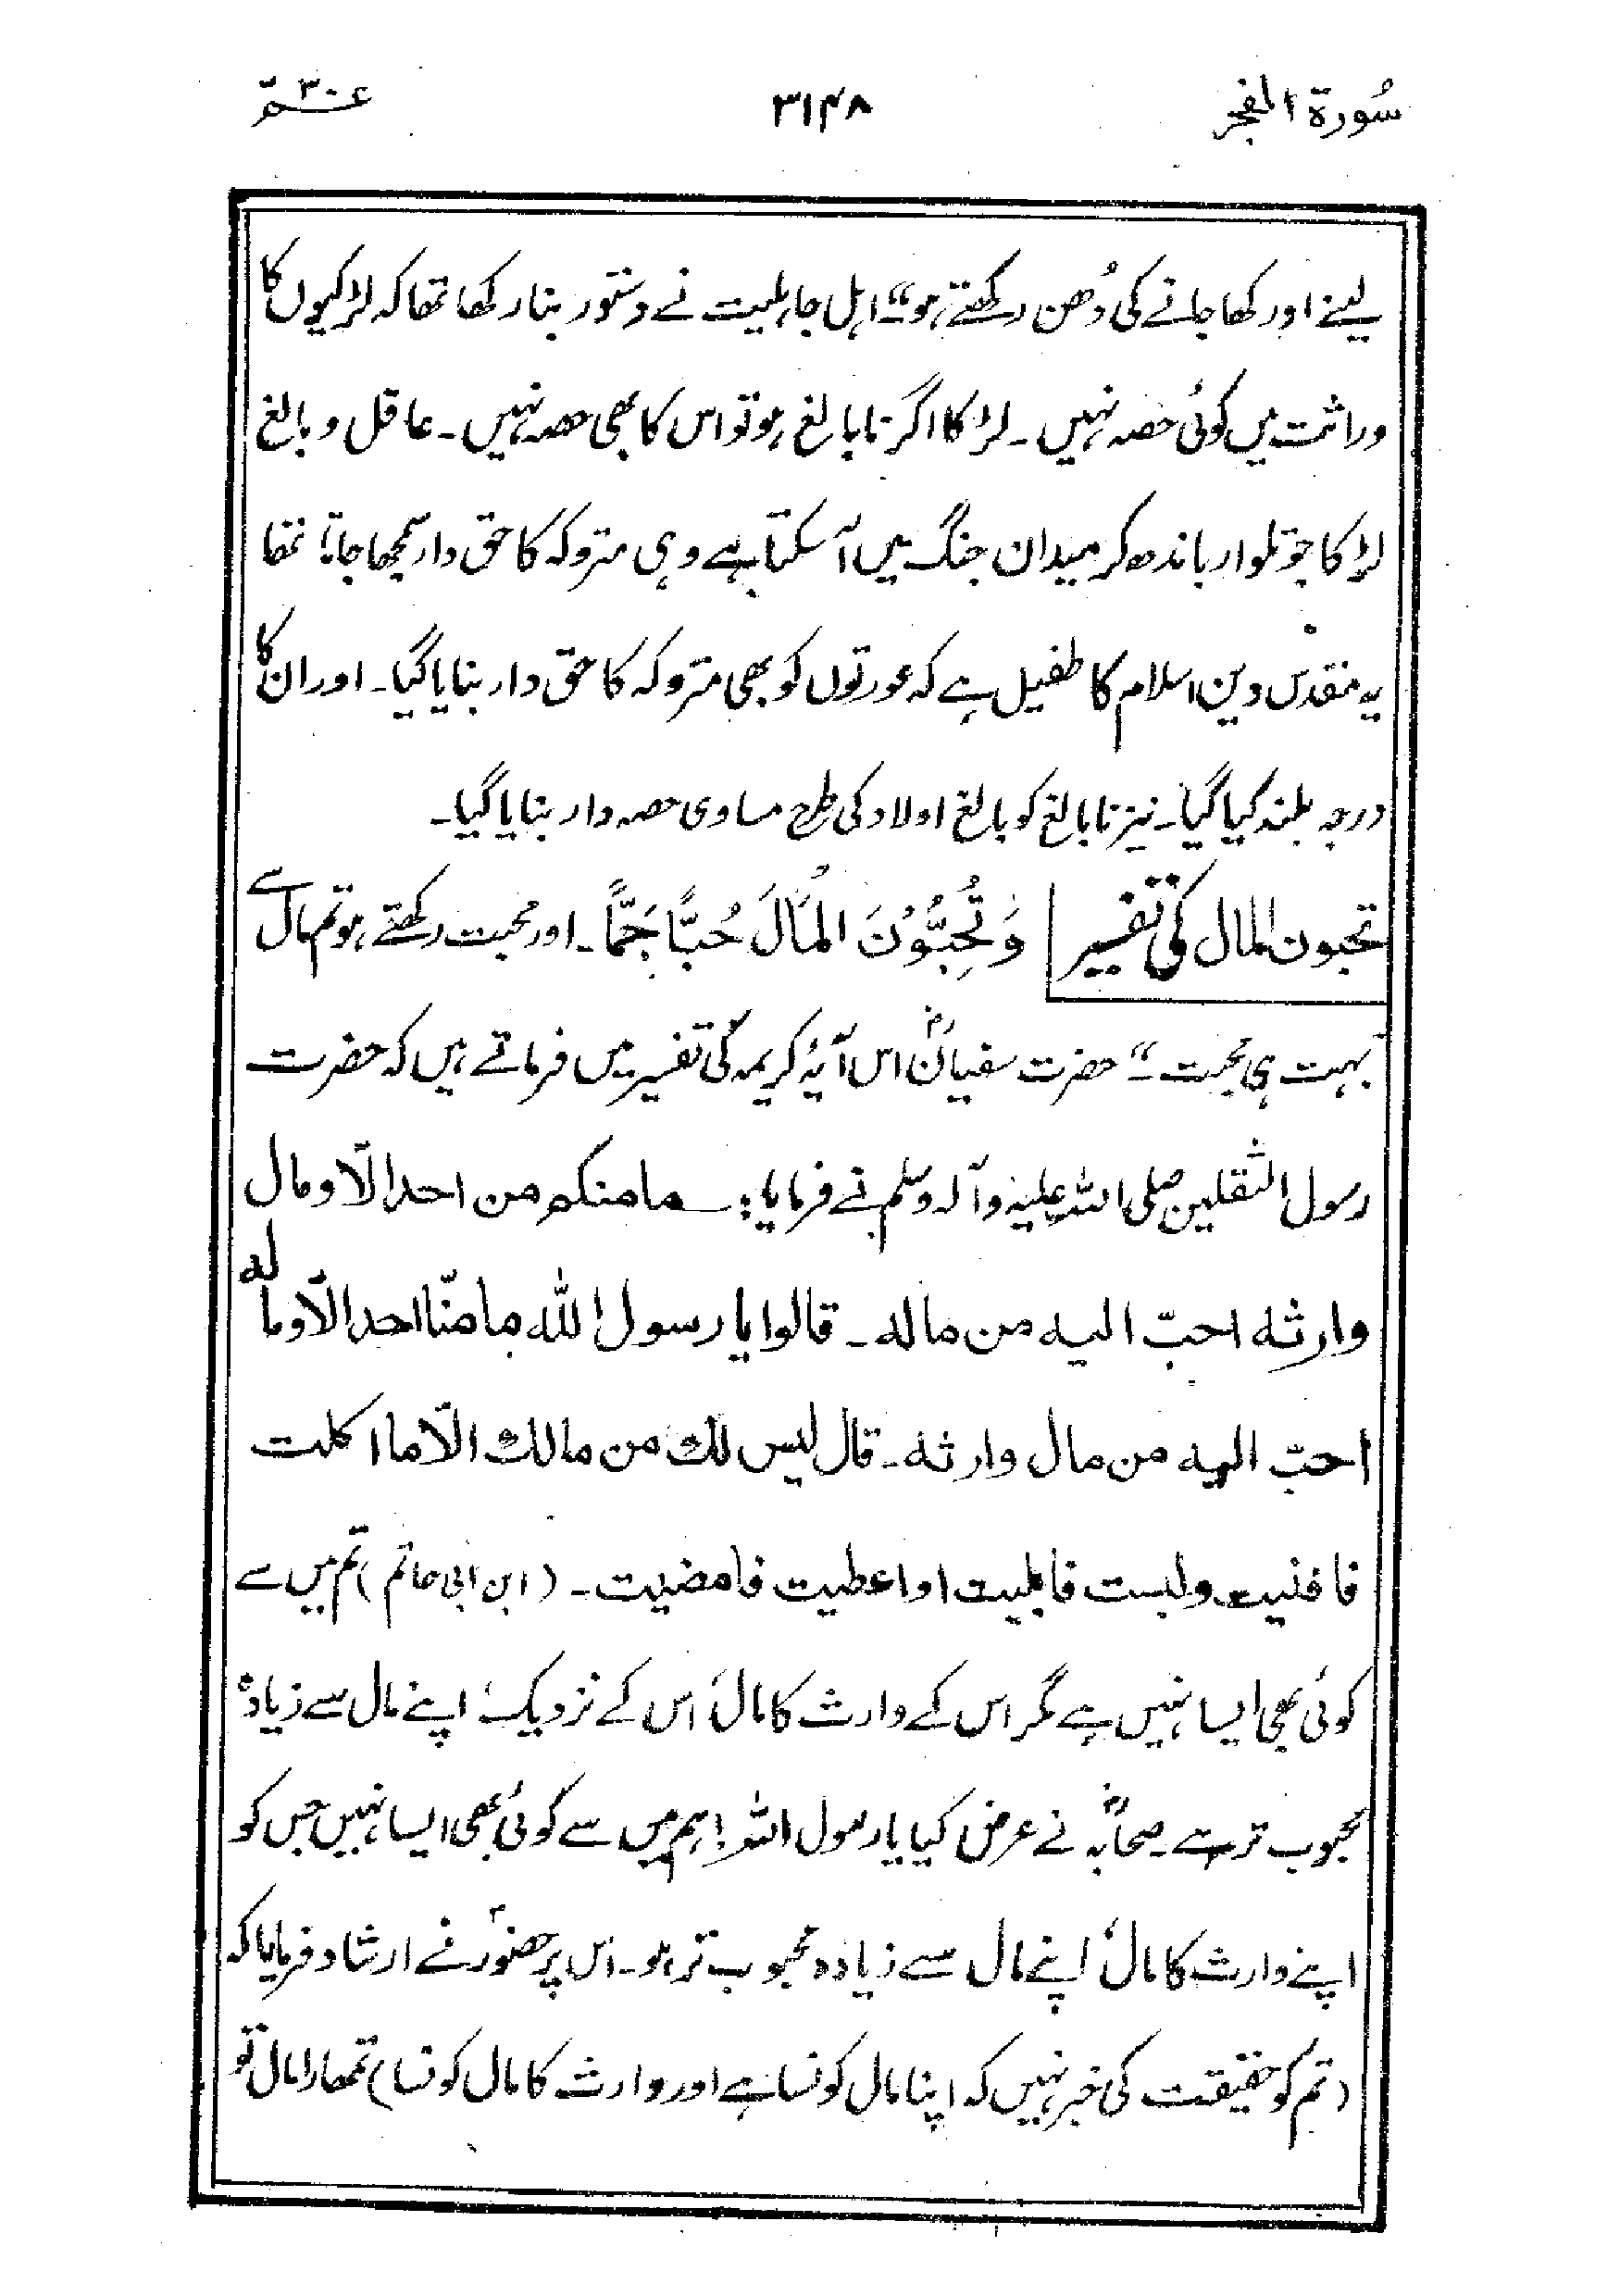 سُورۃ الفجر
۳۱۴۸
عــمّ ۳۰
لینے اور کھا جانے کی دُھن رکھتے ہو“۔ اہل جاہلیت نے دستور بنا رکھا تھا کہ لڑکیوں کا
وراثت میں کوئی حصہ نہیں۔ لڑکا اگر نابالغ ہو تو اس کا بھی حصہ نہیں۔ عاقل و بالغ
لڑکا جو تلوار باندھ کر میدان جنگ میں آ سکتا ہے وہی متروکہ کا حق دار سمجھا جاتا تھا
یہ مقدس دین اسلام کا طفیل ہے کہ عورتوں کو بھی متروکہ کا حق دار بنایا گیا۔ اور ان کا
درجہ بلند کیا گیا۔ نیز نابالغ کو بالغ اولاد کی طرح مساوی حصہ دار بنایا گیا۔
تحبون المال کی تفسیر وَتُحِبُّوْنَ الْمَالَ حُبًّا جَمًّا۔ اور محبت رکھتے ہو تم مال سے
بہت ہی محبت“۔ حضرت سفیانؓ اس آیۂ کریمہ کی تفسیر میں فرماتے ہیں کہ حضرت
رسول الثقلین صلی اللہ علیہ وآلہ وسلم نے فرمایا: ما منکم من احد الّا ومال
وارثہ احبّ الیہ من مالہ۔ قالوا یا رسول اللہ ما منّا احد الّا وما لہ
احبّ الیہ من مال وارثہ۔ قال لیس لک من مالک الّا ما اکلت
فافنیت ولبست فابلیت او اعطیت فامضیت۔ (ابن ابی حاتم) تم میں سے
کوئی بھی ایسا نہیں ہے مگر اس کے وارث کا مال اس کے نزدیک اپنے مال سے زیادہ
محبوب تر ہے۔ صحابہؓ نے عرض کیا یا رسول اللہ! ہم میں سے کوئی بھی ایسا نہیں جس کو
اپنے وارث کا مال اپنے مال سے زیادہ محبوب تر ہو۔ اس پر حضورؐ نے ارشاد فرمایا کہ
(تم کو حقیقت کی خبر نہیں کہ اپنا مال کونسا ہے اور وارث کا مال کونسا) تمھارا مال تو